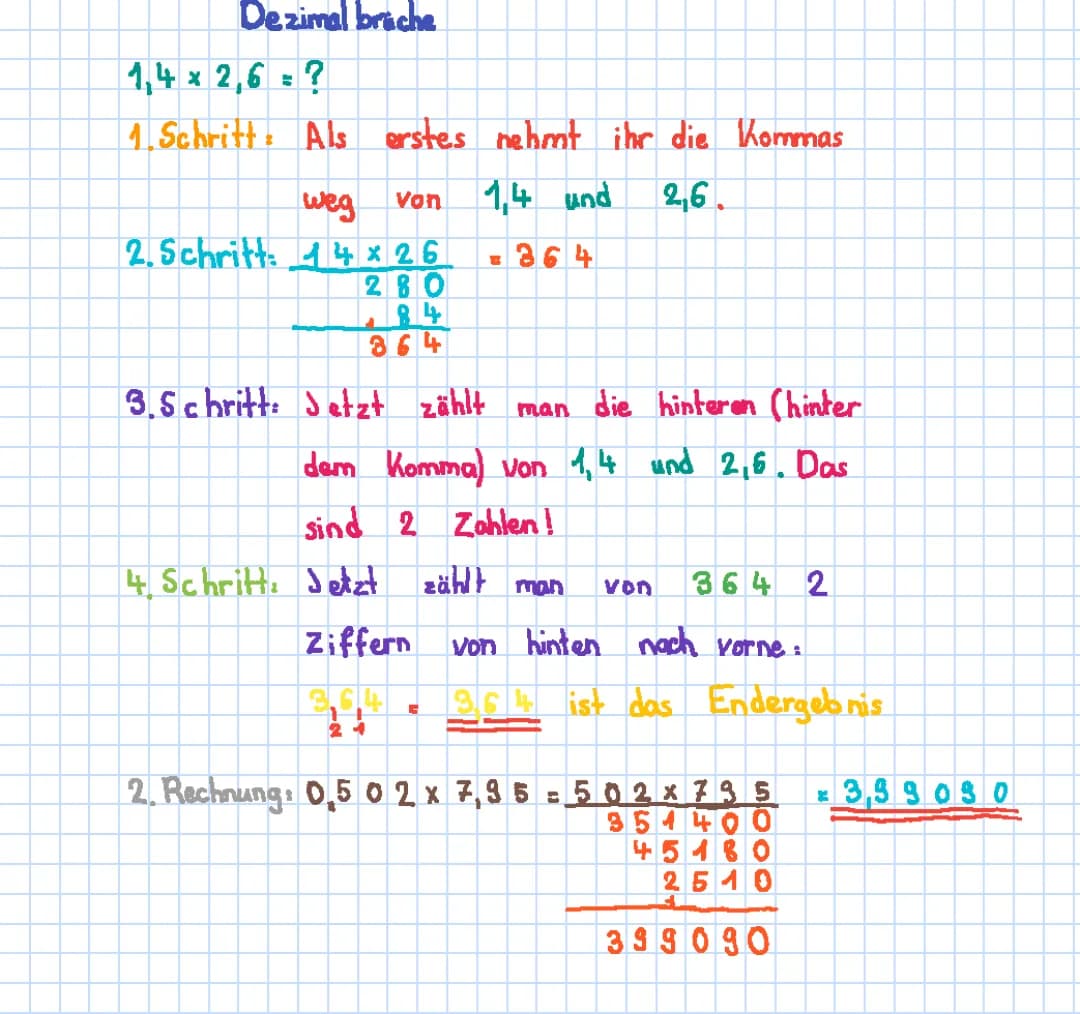 Dezimalbrüche
1,4 x 2,6 = ?
1. Schritt: Als erstes nehmt ihr die Kommas
weg von 1,4 und 2,6.
2. Schritt: 14 x 26 = 364
280
1 84
364
3. Schritt: Jetzt zählt man die hinteren (hinter
dem Komma) von 1,4 und 2,6. Das
sind 2 Zahlen!
4. Schritt: Jetzt zählt man von 364 2
Ziffern von hinten nach vorne:
3,6,4 = 3,64 ist das Endergebnis
2 1
2. Rechnung: 0,502 x 7,95 = 502 x 795 = 3,99090
351400
45180
2510
1
399090